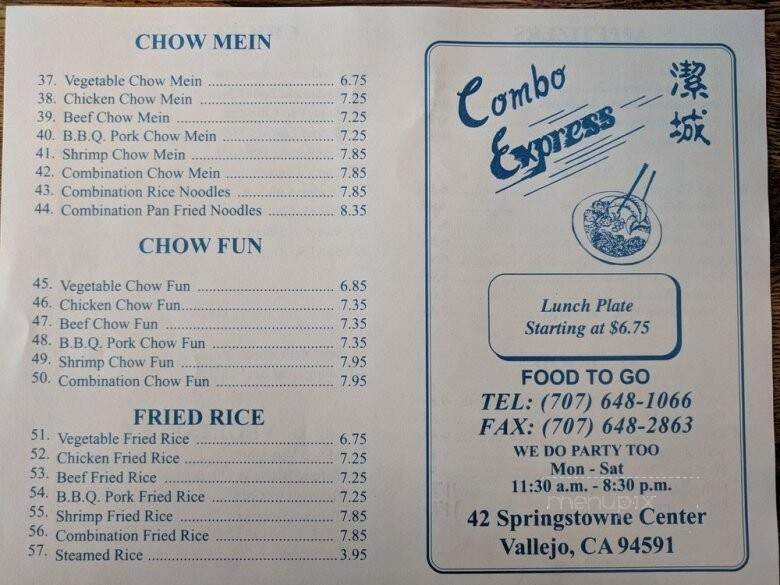 CHOW MEIN
37. Vegetable Chow Mein ........ 6.75
38. Chicken Chow Mein ........ 7.25
39. Beef Chow Mein ........ 7.25
40. B.B.Q. Pork Chow Mein ........ 7.25
41. Shrimp Chow Mein ........ 7.85
42. Combination Chow Mein ........ 7.85
43. Combination Rice Noodles ........ 7.85
44. Combination Pan Fried Noodles ........ 8.35
CHOW FUN
45. Vegetable Chow Fun ........ 6.85
46. Chicken Chow Fun ........ 7.35
47. Beef Chow Fun ........ 7.35
48. B.B.Q. Pork Chow Fun ........ 7.35
49. Shrimp Chow Fun ........ 7.95
50. Combination Chow Fun ........ 7.95
FRIED RICE
51. Vegetable Fried Rice ........ 6.75
52. Chicken Fried Rice ........ 7.25
53. Beef Fried Rice ........ 7.25
54. B.B.Q. Pork Fried Rice ........ 7.25
55. Shrimp Fried Rice ........ 7.85
56. Combination Fried Rice ........ 7.85
57. Steamed Rice ........ 3.95
Combo
Express
潔城
Lunch Plate
Starting at $6.75
FOOD TO GO
TEL: (707) 648-1066
FAX: (707) 648-2863
WE DO PARTY TOO
Mon - Sat
11:30 a.m. - 8:30 p.m.
menupix
42 Springstowne Center
Vallejo, CA 94591